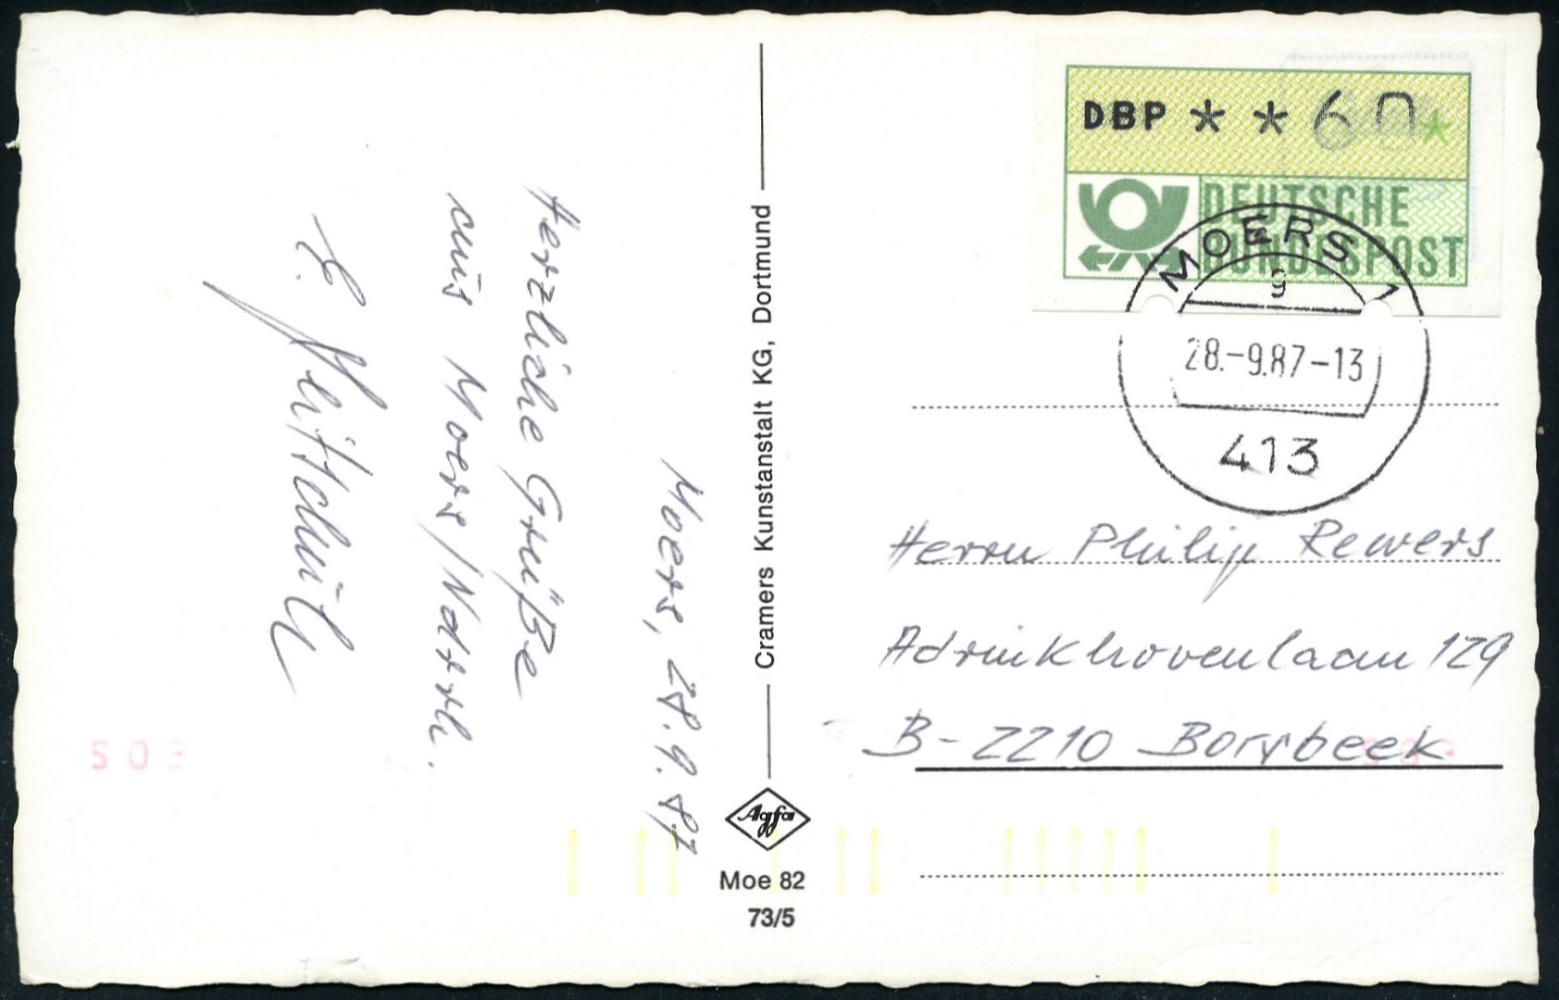 Moers, 28.9.87
Herzliche Grüße
aus Moers/Ndrrh.
Cramers Kunstanstalt KG, Dortmund
Agfa
Moe 82
73/5
DBP ** 60*
DEUTSCHE
BUNDESPOST
MOERS 1
g
28.-9.87-13
413
Herrn Philip Rewers
Adrinkhovenlaan 129
B-2210 Borsbeek
503